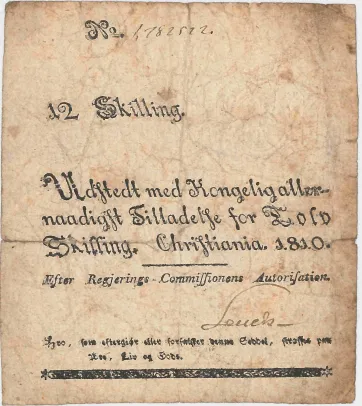 No. 1,782522.
12 Skilling.
Udstedt med Kongelig aller-
naadigst Tilladelse for Tolv
Skilling. Christiania. 1810.
Efter Regjerings-Commissionens Autorisation.
som eftergiør eller forfalsker denne Seddel, straffes paa
Ære, Liv og Gods.